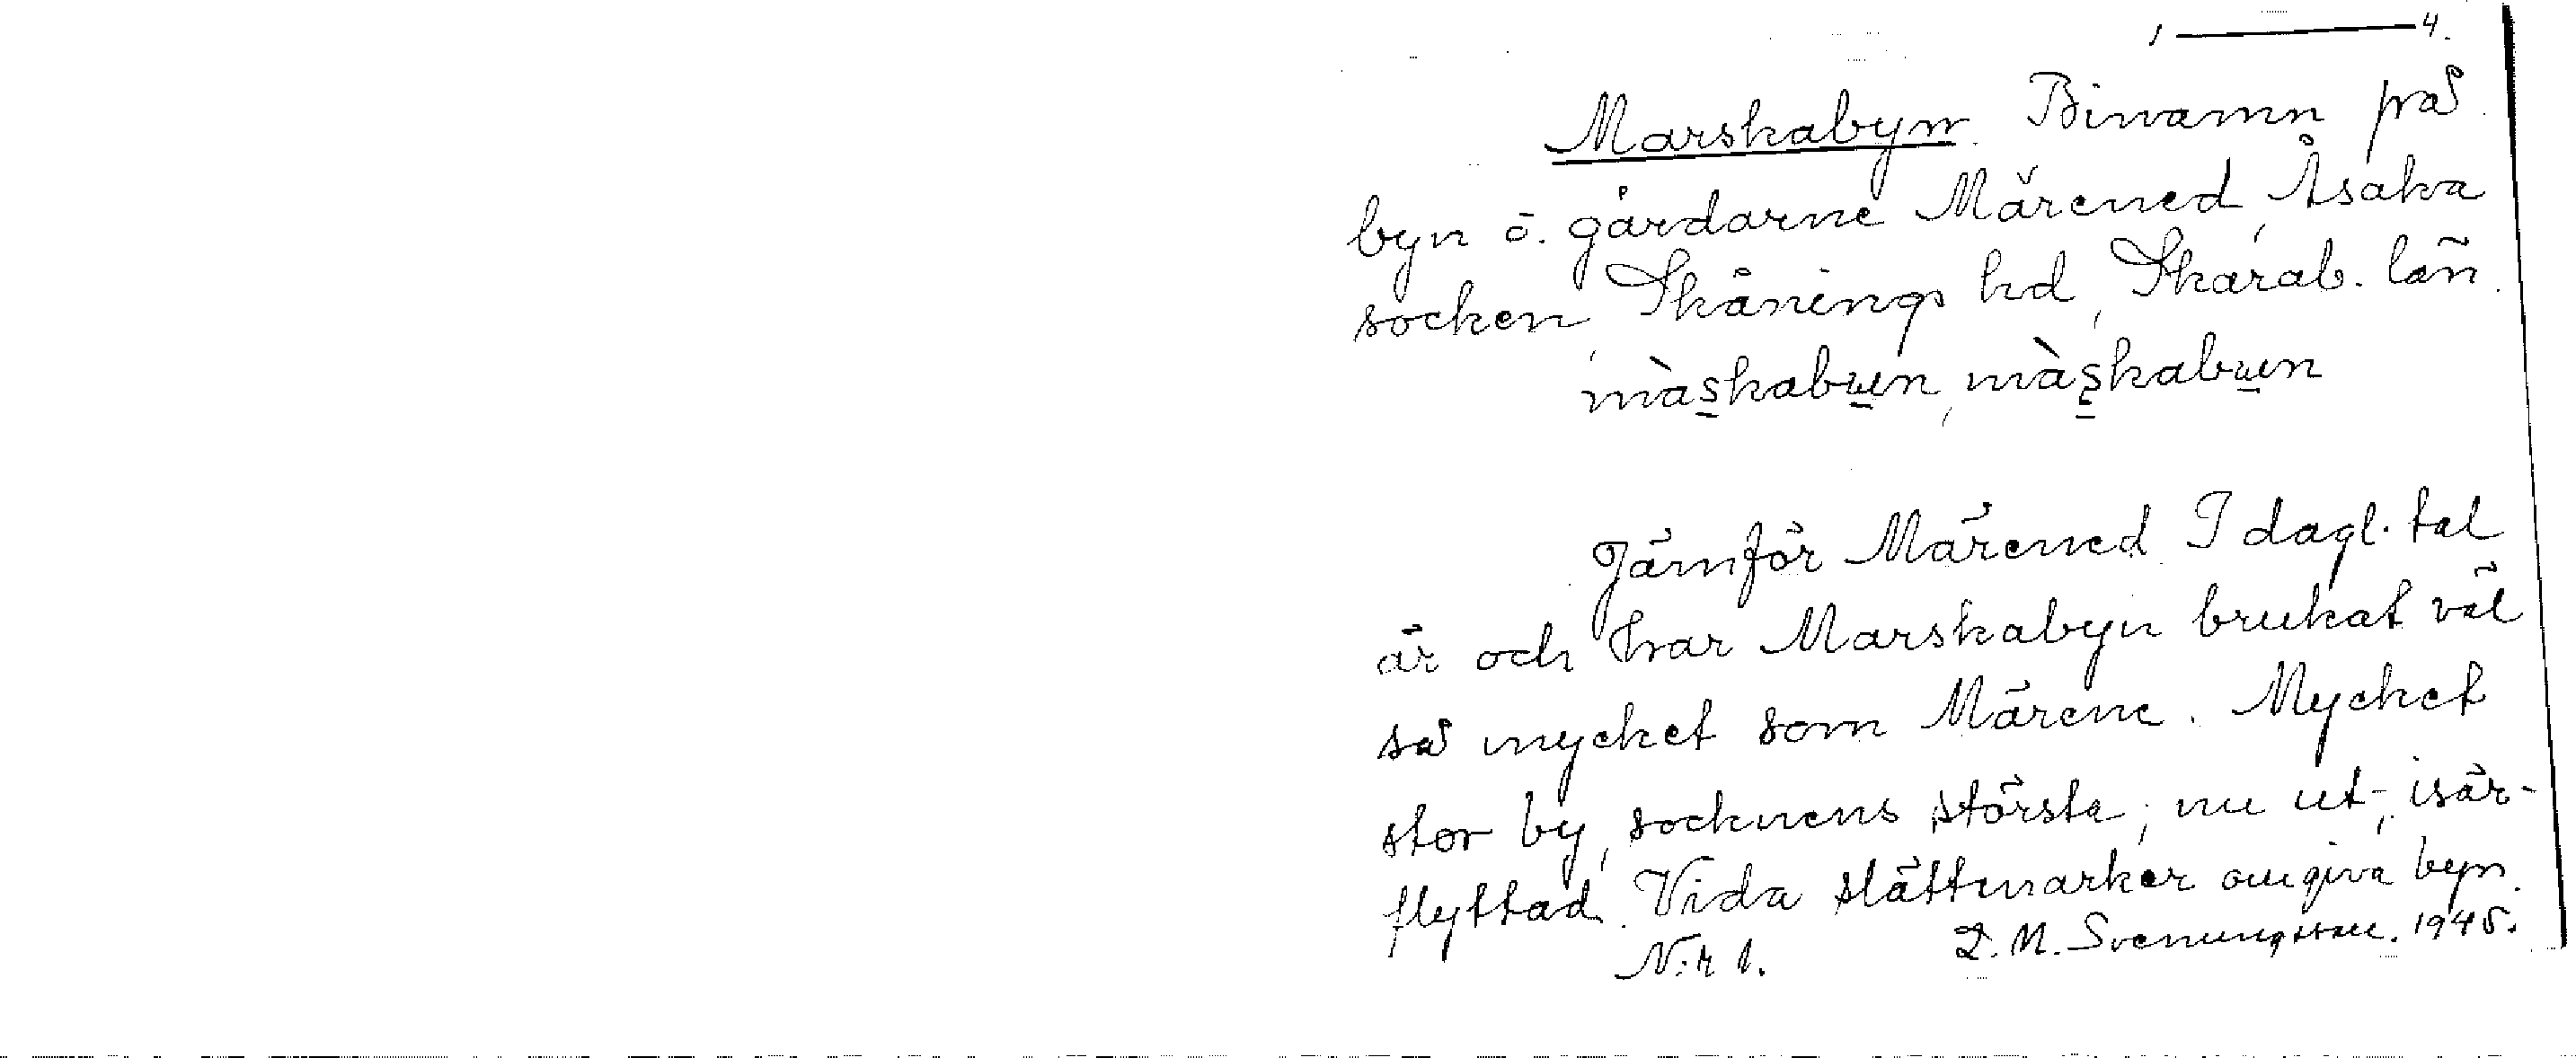 1 — 4.
Marskabyn. Binamn på
byn o. gårdarne Märened, Åsaka
socken, Skånings hd, Skarab. län.
màskabuen, màskabuen
Jämför Märened I dagl. tal
är och har Marskabyn brukat väl
så mycket som Märene. Mycket
stor by, socknens största; nu ut-, isär-
flyttad. Vida slättmarker omgiva byn.
N:r 1. L. M. Svenungsson. 1945.